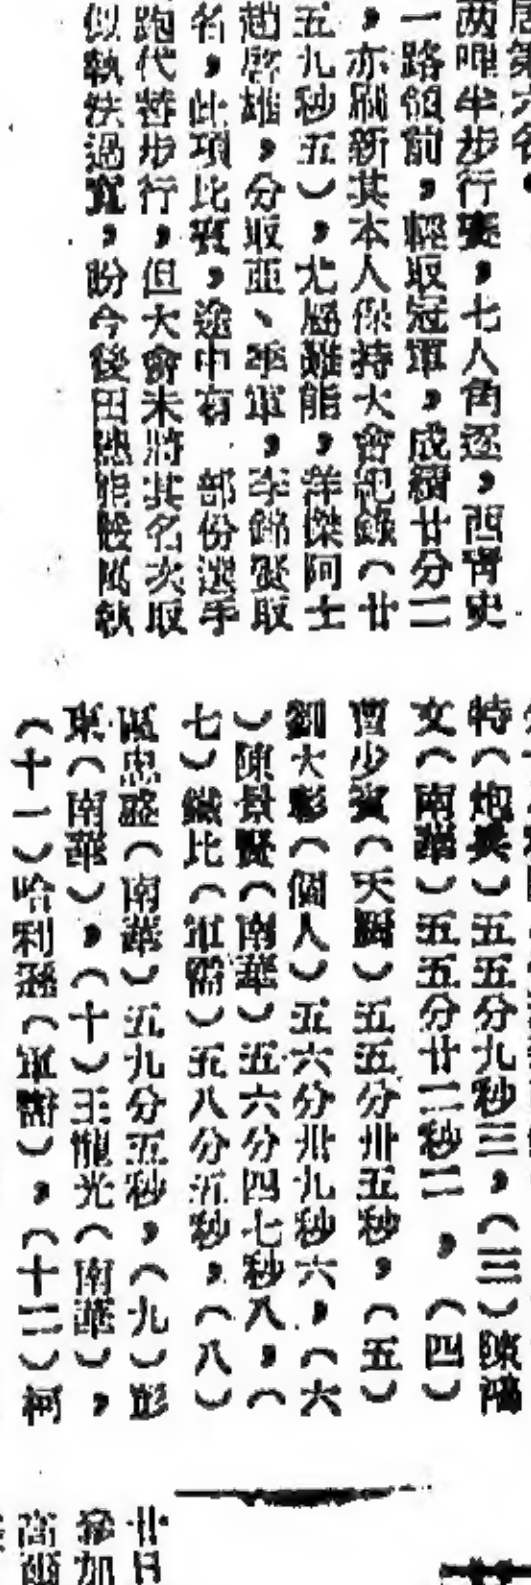 居第六名。
两哩半步行賽，七人角逐，西青史
一路領前，輕取冠軍，成績廿分二
，亦刷新其本人保持大會紀錄（廿
五九秒五），尤屬難能，洋傑阿士
趙啓雄，分取亞、季軍，李錦 取
名，此項比賽，途中有 部份選手
跑代替步行，但大會未將其名次取
似執法過寬，盼今後田 能 執
特（炮兵）五五分九秒三，（三）陳鴻
文（南華）五五分廿二秒二，（四）
曹少 （天厨）五五分卅五秒，（五）
劉大彰（個人）五六分卅九秒六，（六
）陳景賢（南華）五六分四七秒八，（
七）鐵比（軍醫）五八分五秒，（八）
區忠盛（南華）五九分五秒，（九）彭
東（南華），（十）王 光（南華），
（十一）哈利孫（軍醫），（十二）柯
廿日
參加
高爾